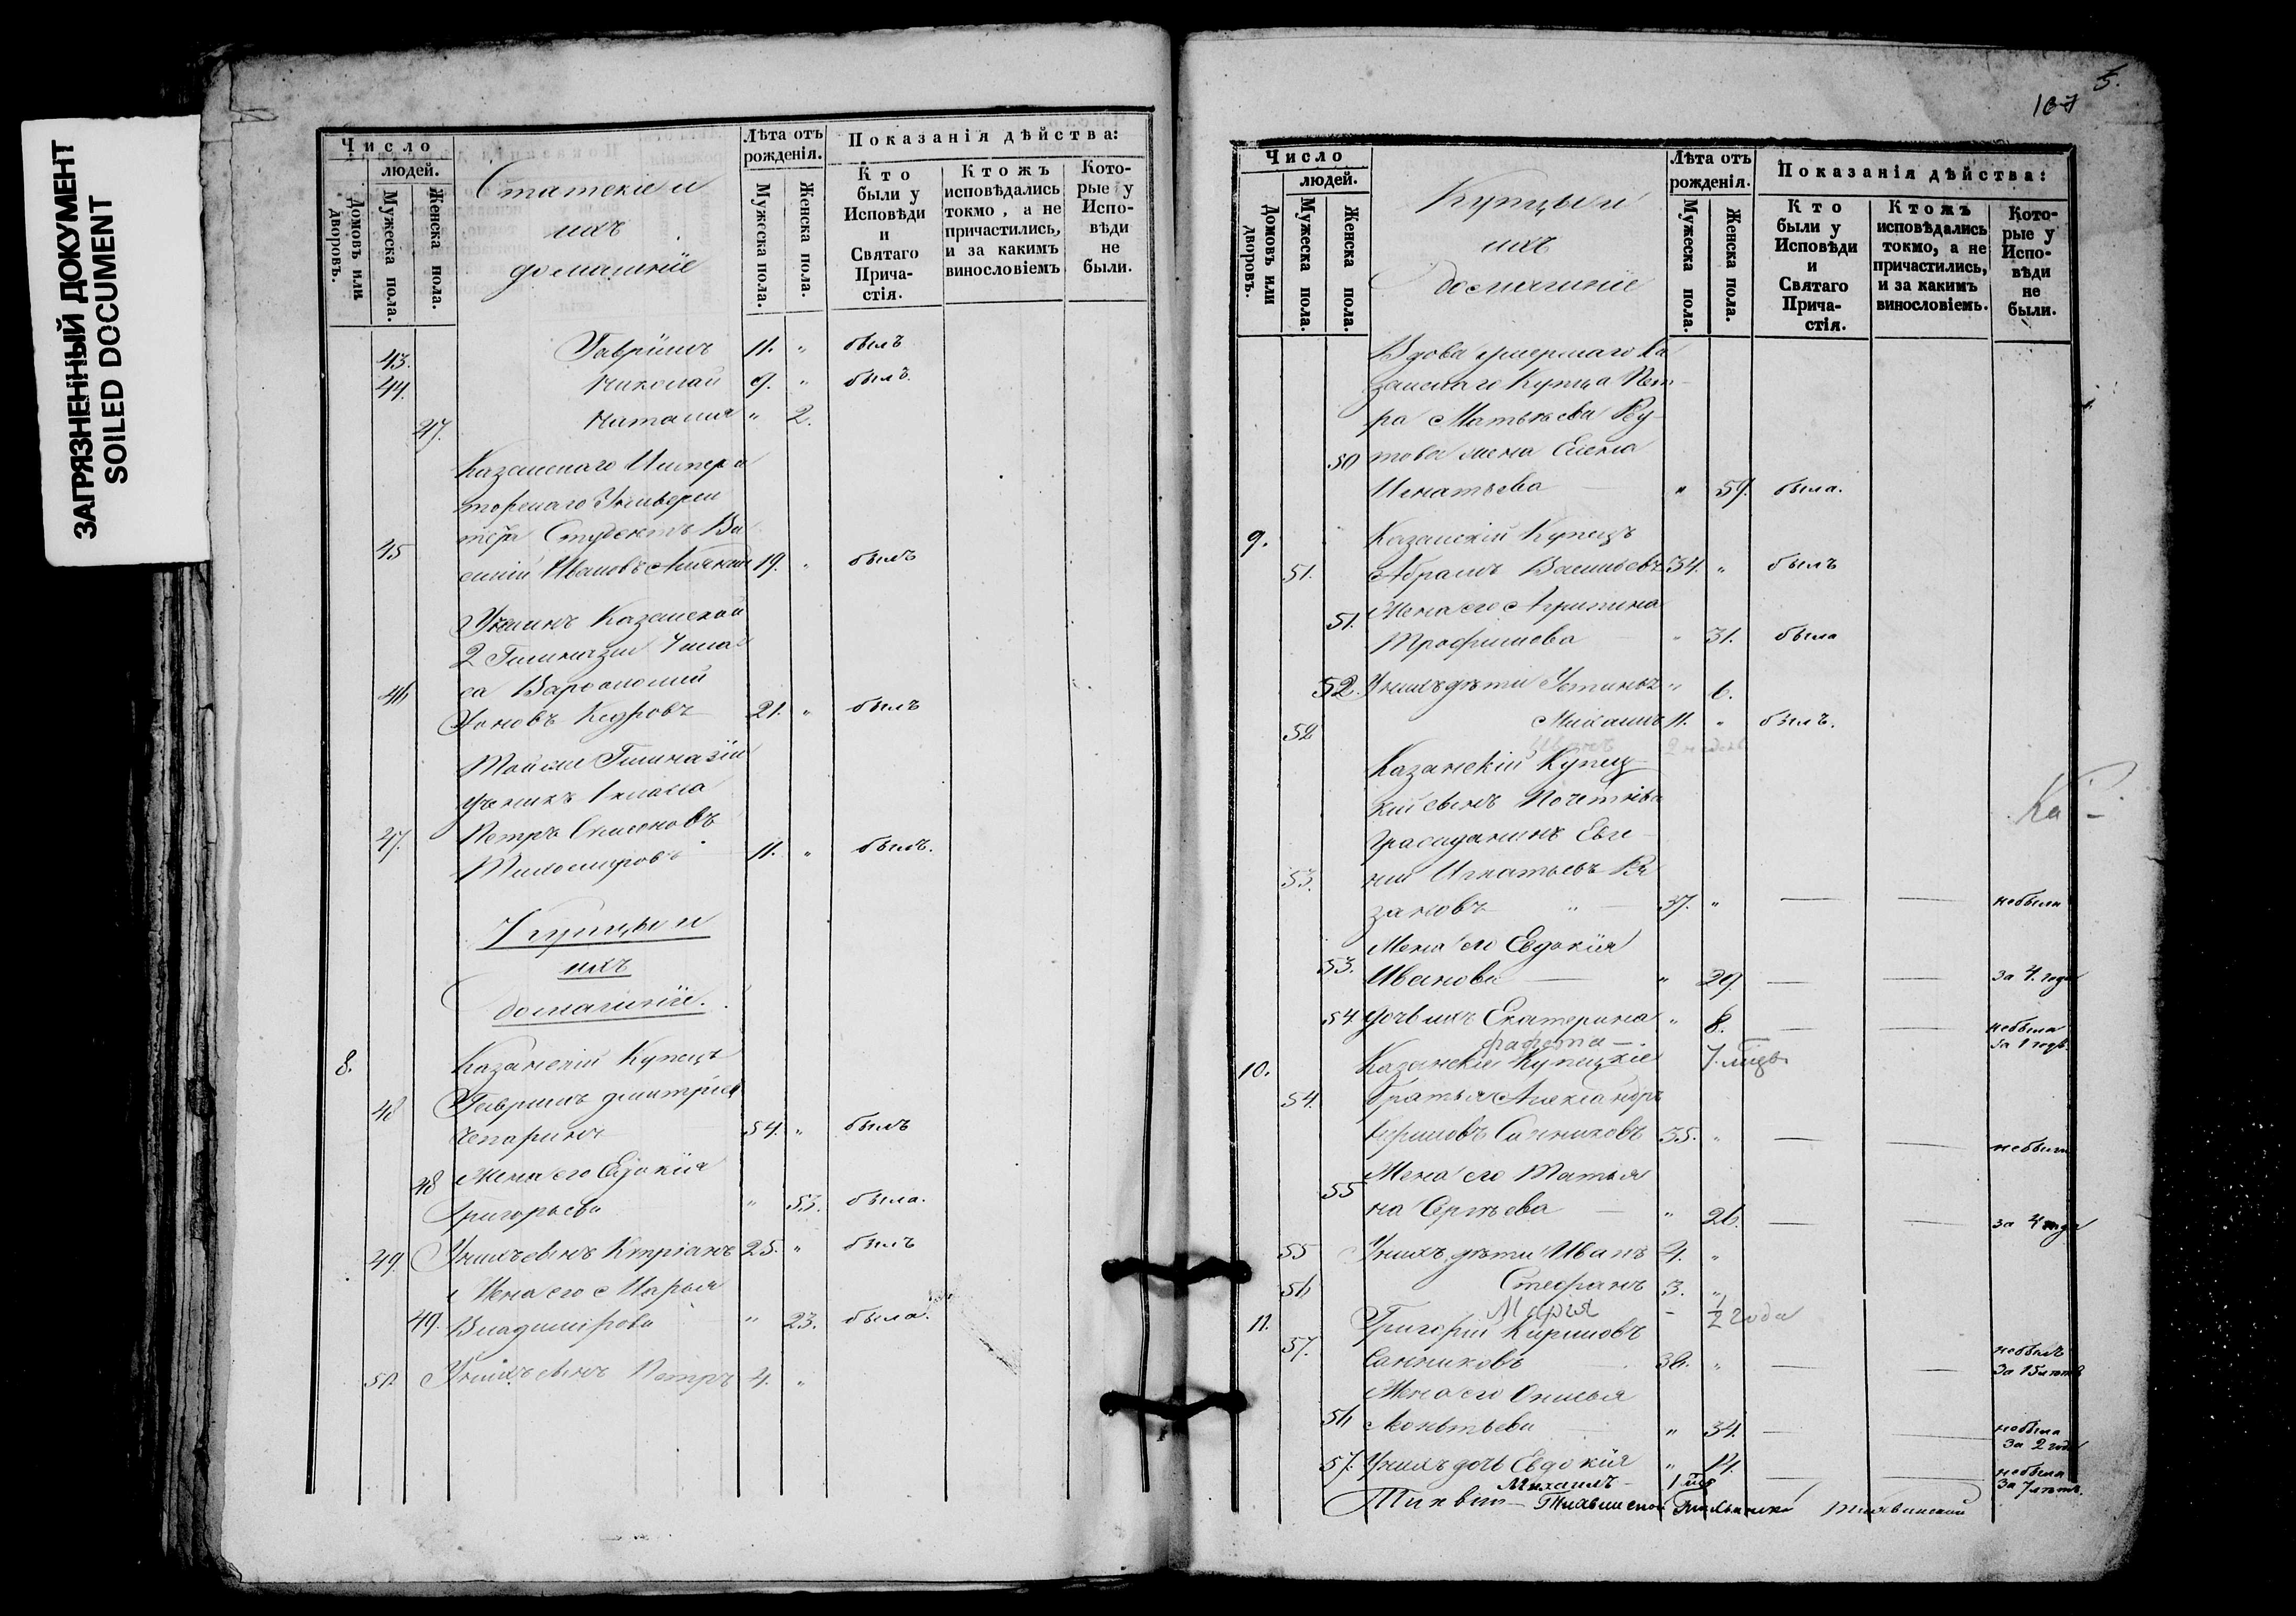 ЗАГРЯЗНЕННЫЙ ДОКУМЕНТ
SOILED DOCUMENT
Число
людей.
Домовъ или дворовъ.
Мужеска пола.
Женска пола.
Статскіе и
ихъ
домашніе
Лѣта отъ рожденія.
Мужеска пола.
Женска пола.
Показанія дѣйства:
Кто были у Исповѣди и Святаго Прича-стія.
Ктожъ исповѣдались токмо, а не причастились, и за какимъ винословіемъ
Кото-рые у Испо-вѣди не были.
43. Гавріилъ 11. " былъ
44. Николай 9. " былъ
47. Наталия " 2.
Казанскаго Импера
торскаго Универси
тета Студентъ Ва
45 силій Ивановъ 19. " былъ
Ученикъ Казанской
2 Гимназіи 4 клас
46 са Варѳоломей
Іоновъ Кедровъ 21. " былъ
Той же Гимназіи
ученикъ 1 класса
47. Петръ Симоновъ
Тихомировъ 11. " былъ.
Купцы и
ихъ
домашніе.
8. Казанскій Купецъ
48 Гавриилъ Дмитріев
Чепаринъ 54. " былъ
48 Жена его Евдокія
Григорьева " 53. была.
49. У нихъ сынъ Кипріанъ 25. " былъ
Жена его Марья
49. Владимірова " 23. была.
50. У нихъ сынъ Петръ 4. "
5.
107
Число
людей.
Домовъ или дворовъ.
Мужеска пола.
Женска пола.
Купцы и
ихъ
домашніе
Лѣта отъ рожденія.
Мужеска пола.
Женска пола.
Показанія дѣйства:
Кто были у Исповѣди и Святаго Прича-стія.
Ктожъ исповѣдались токмо, а не причастились, и за какимъ винословіемъ.
Кото-рые у Испо-вѣди не были.
Вдова умершаго Ка
занскаго Купца Пет-
ра Матвѣева
50 жена Елена
Игнатьева " 57. была.
9. Казанскій Купецъ
51. Абрамъ Васильевъ 34. " былъ
51. Жена его Агрипина
Трофимова " 31. была
52. У нихъ дѣти Устинья " 6.
52 Михаилъ 11. " былъ.
Иванъ 2 недель
Казанскій Купец-
кій сынъ Почетный
Гражданинъ Евге-
53. ній Игнатьевъ Ря
зановъ 37. " — — небылъ
Жена его Евдокія
53. Иванова " 29. — — за 4 года
54 Дочь ихъ Екатерина " 8. — — небыла за 1 годъ.
10. Казанскіе Купецкіе
54. братья Александръ
Кириловъ Санниковъ 35. " — — небылъ
Жена его Татья
55 на Сергѣева " 26. — — за 4 года
55 У нихъ дѣти Иванъ 4. "
56 Стефанъ 3. "
Марія - 1/2 года
11. Григорій Кириловъ
57. Санниковъ 36. " — — небылъ за 15 лѣтъ
Жена его
56 Леонтьева " 34. — — небыла за 2 года
57. У нихъ дочь Евдокія " 14. — — небыла за 7 лѣтъ.
Михаилъ -